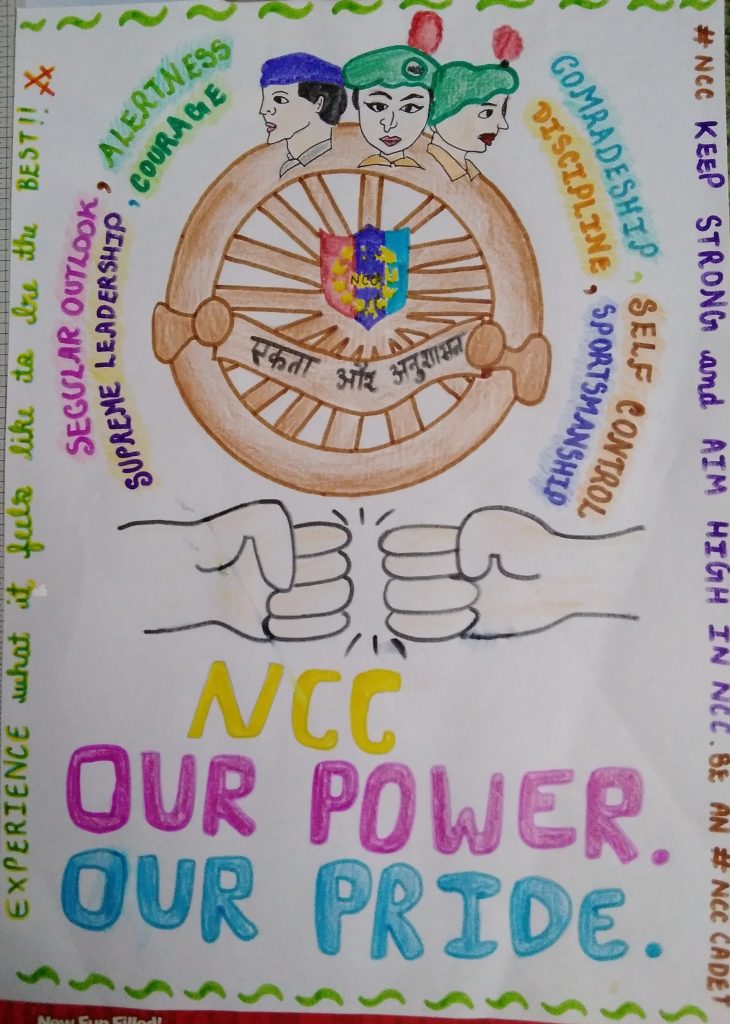 EXPERIENCE what it feels like to be the BEST!!
ALERTNESS
, COURAGE
SEGULAR OUTLOOK,
SUPREME LEADERSHIP
COMRADESHIP,
DISCIPLINE,
SELF CONTROL
SPORTSMANSHIP
#NCC KEEP STRONG and AIM HIGH IN NCC. BE AN #NCC CADET
NCC
NCC
एकता और अनुशासन
NCC
OUR POWER.
OUR PRIDE.
Now Fun Filled!